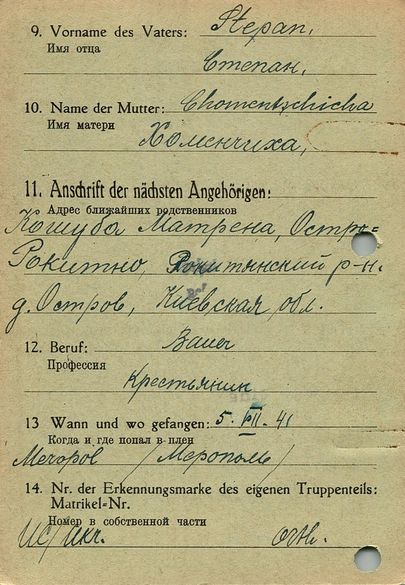 9. Vorname des Vaters: Stepan,
Имя отца
Степан,
10. Name der Mutter: Chomentschicha
Имя матери
Хоменчиха,
11. Anschrift der nächsten Angehörigen:
Адрес ближайших родственников
Кошуба Матрена, Остро-
Рокитно, Рокитянский р-н.
д. Остров, Киевская обл.
12. Beruf: Bauer
Профессия
Крестьянин
13 Wann und wo gefangen: 5. VII. 41
Когда и где попал в плен
Мегоров /Мерополь/
14. Nr. der Erkennungsmarke des eigenen Truppenteils:
Matrikel-Nr.
Номер в собственной части
orth.